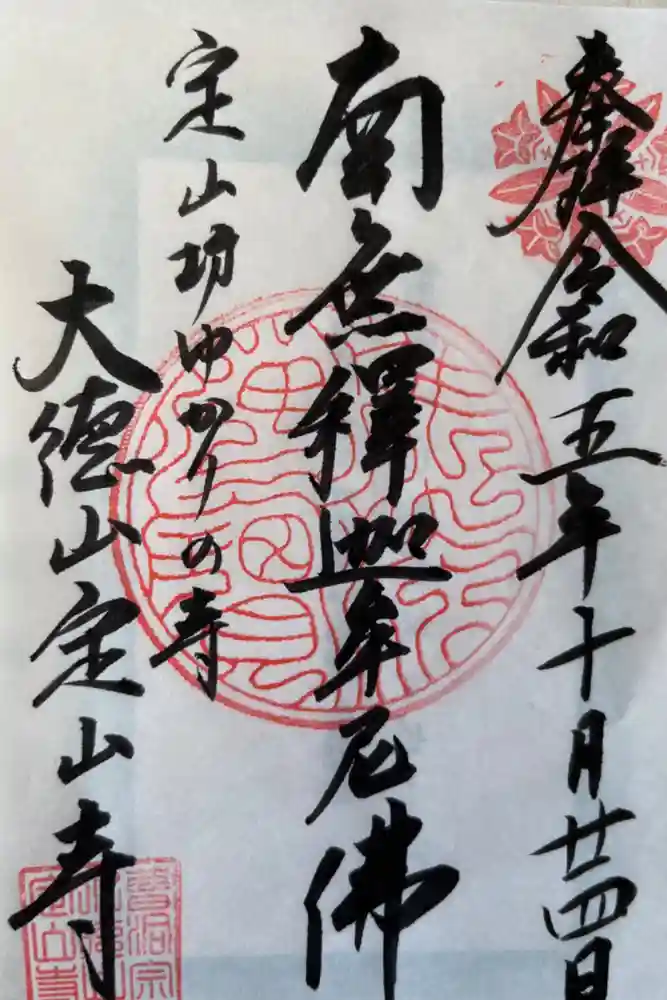 奉拝令和五年十月廿四日
南無釋迦牟尼佛
定山坊ゆかりの寺
大徳山定山寺
曹洞宗
定山寺